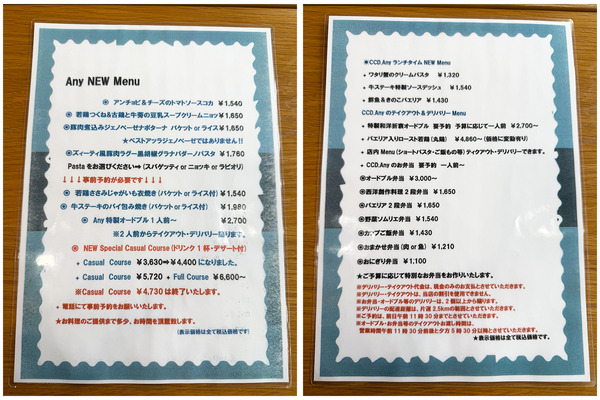 Any NEW Menu
◎ アンチョビ&チーズのトマトソースコカ ¥1,540
◎ 若鶏つくね&古鶏と牛蒡の豆乳スープクリームニョッ ¥1,650
◎豚肉煮込みジェノベーゼナポターナ バケット or ライス ¥1,650
★ペーストアッラジェノベーゼではありません!!
◎ズィーティ風豚肉ラグー黒胡椒グラナパダーノパスタ ¥1,760
Pasta をお選びください⇒(スパゲッティ or ニョッキ or ラビオリ)
↓↓↓事前予約が必要です!↓↓↓
◎ 若鶏ささみじゃがいも衣焼き(バケット or ライス付) ¥1,540
◎ 牛ステーキのパイ包み焼き(バケット or ライス付) ¥1,980
◎ Any 特製オードブル 1人前~ ¥2,700
※2人前からテイクアウト・デリバリー賜ります。
◎ NEW Special Casual Course(ドリンク1杯・デザート付)
+ Casual Course ¥3,630⇒¥4,400になりました。
+ Casual Course ¥5,720 + Full Course ¥6,600~
※ Casual Course ¥4,730は終了いたします。
+ 電話にて事前予約をお願いいたします。
★お料理のご提供まで多少、お時間を頂戴致します。
(表示価格は全て税込価格です)
★CCD,Any ランチタイム NEW Menu
+ ワタリ蟹のクリームパスタ ¥1,320
+ 牛ステーキ特製ソースデッシュ ¥1,540
+ 鮮魚&きのこパエリア ¥1,430
CCD,Any のテイクアウト&デリバリー Menu
+ 特製和洋折衷オードブル 要予約 予算に応じて一人前 ¥2,700~
+ パエリア入りロースト若鶏(丸鶏) ¥4,860~(価格に変動有り)
+ 店内 Menu(ショートパスタ・ご飯もの等)テイクアウト・デリバリーできます。
+ CCD,Any のお弁当 要予約 一人前~
◎オードブル弁当 ¥3,000~
◎西洋創作料理2段弁当 ¥1,650
◎パエリア2段弁当 ¥1,650
◎野菜ソムリエ弁当 ¥1,540
◎カップご飯弁当 ¥1,430
◎おまかせ弁当(肉 or 魚) ¥1,210
◎おにぎり弁当 ¥1,100
★ご予算に応じて特別なお弁当をお作りいたします。
※デリバリー・テイクアウト代金は、現金のみのお支払とさせていただきます。
※デリバリー・テイクアウトは、当店の割引を使用できません。
※お弁当・オードブル等のデリバリーは、2個以上から賜ります。
※デリバリーの配達距離は、片道2.5kmの範囲とさせていただきます。
※ご予約は、前日午前11時30分までとさせていただきます。
※オードブル・お弁当等のテイクアウトお渡し時間は、
営業時間午前11時30分以降と夕方5時30分以降とさせていただきます。
★表示価格は全て税込価格です。